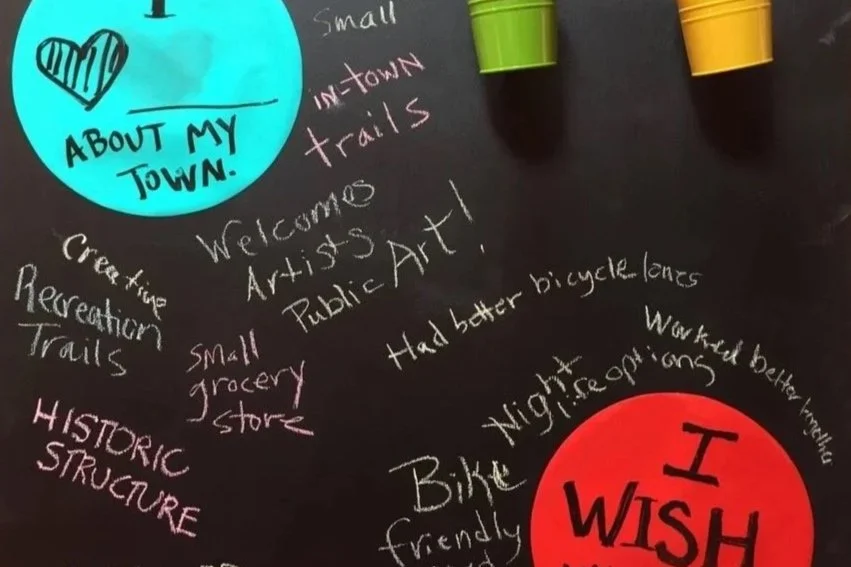 I
ABOUT MY
TOWN.
Small
in-town
trails
Welcomes
Artists
Public Art!
Creative
Recreation
Trails
Small
grocery
store
HISTORIC
STRUCTURE
Had better bicycle lanes
Worked better together
Night
life options
Bike
friendly
I
WISH